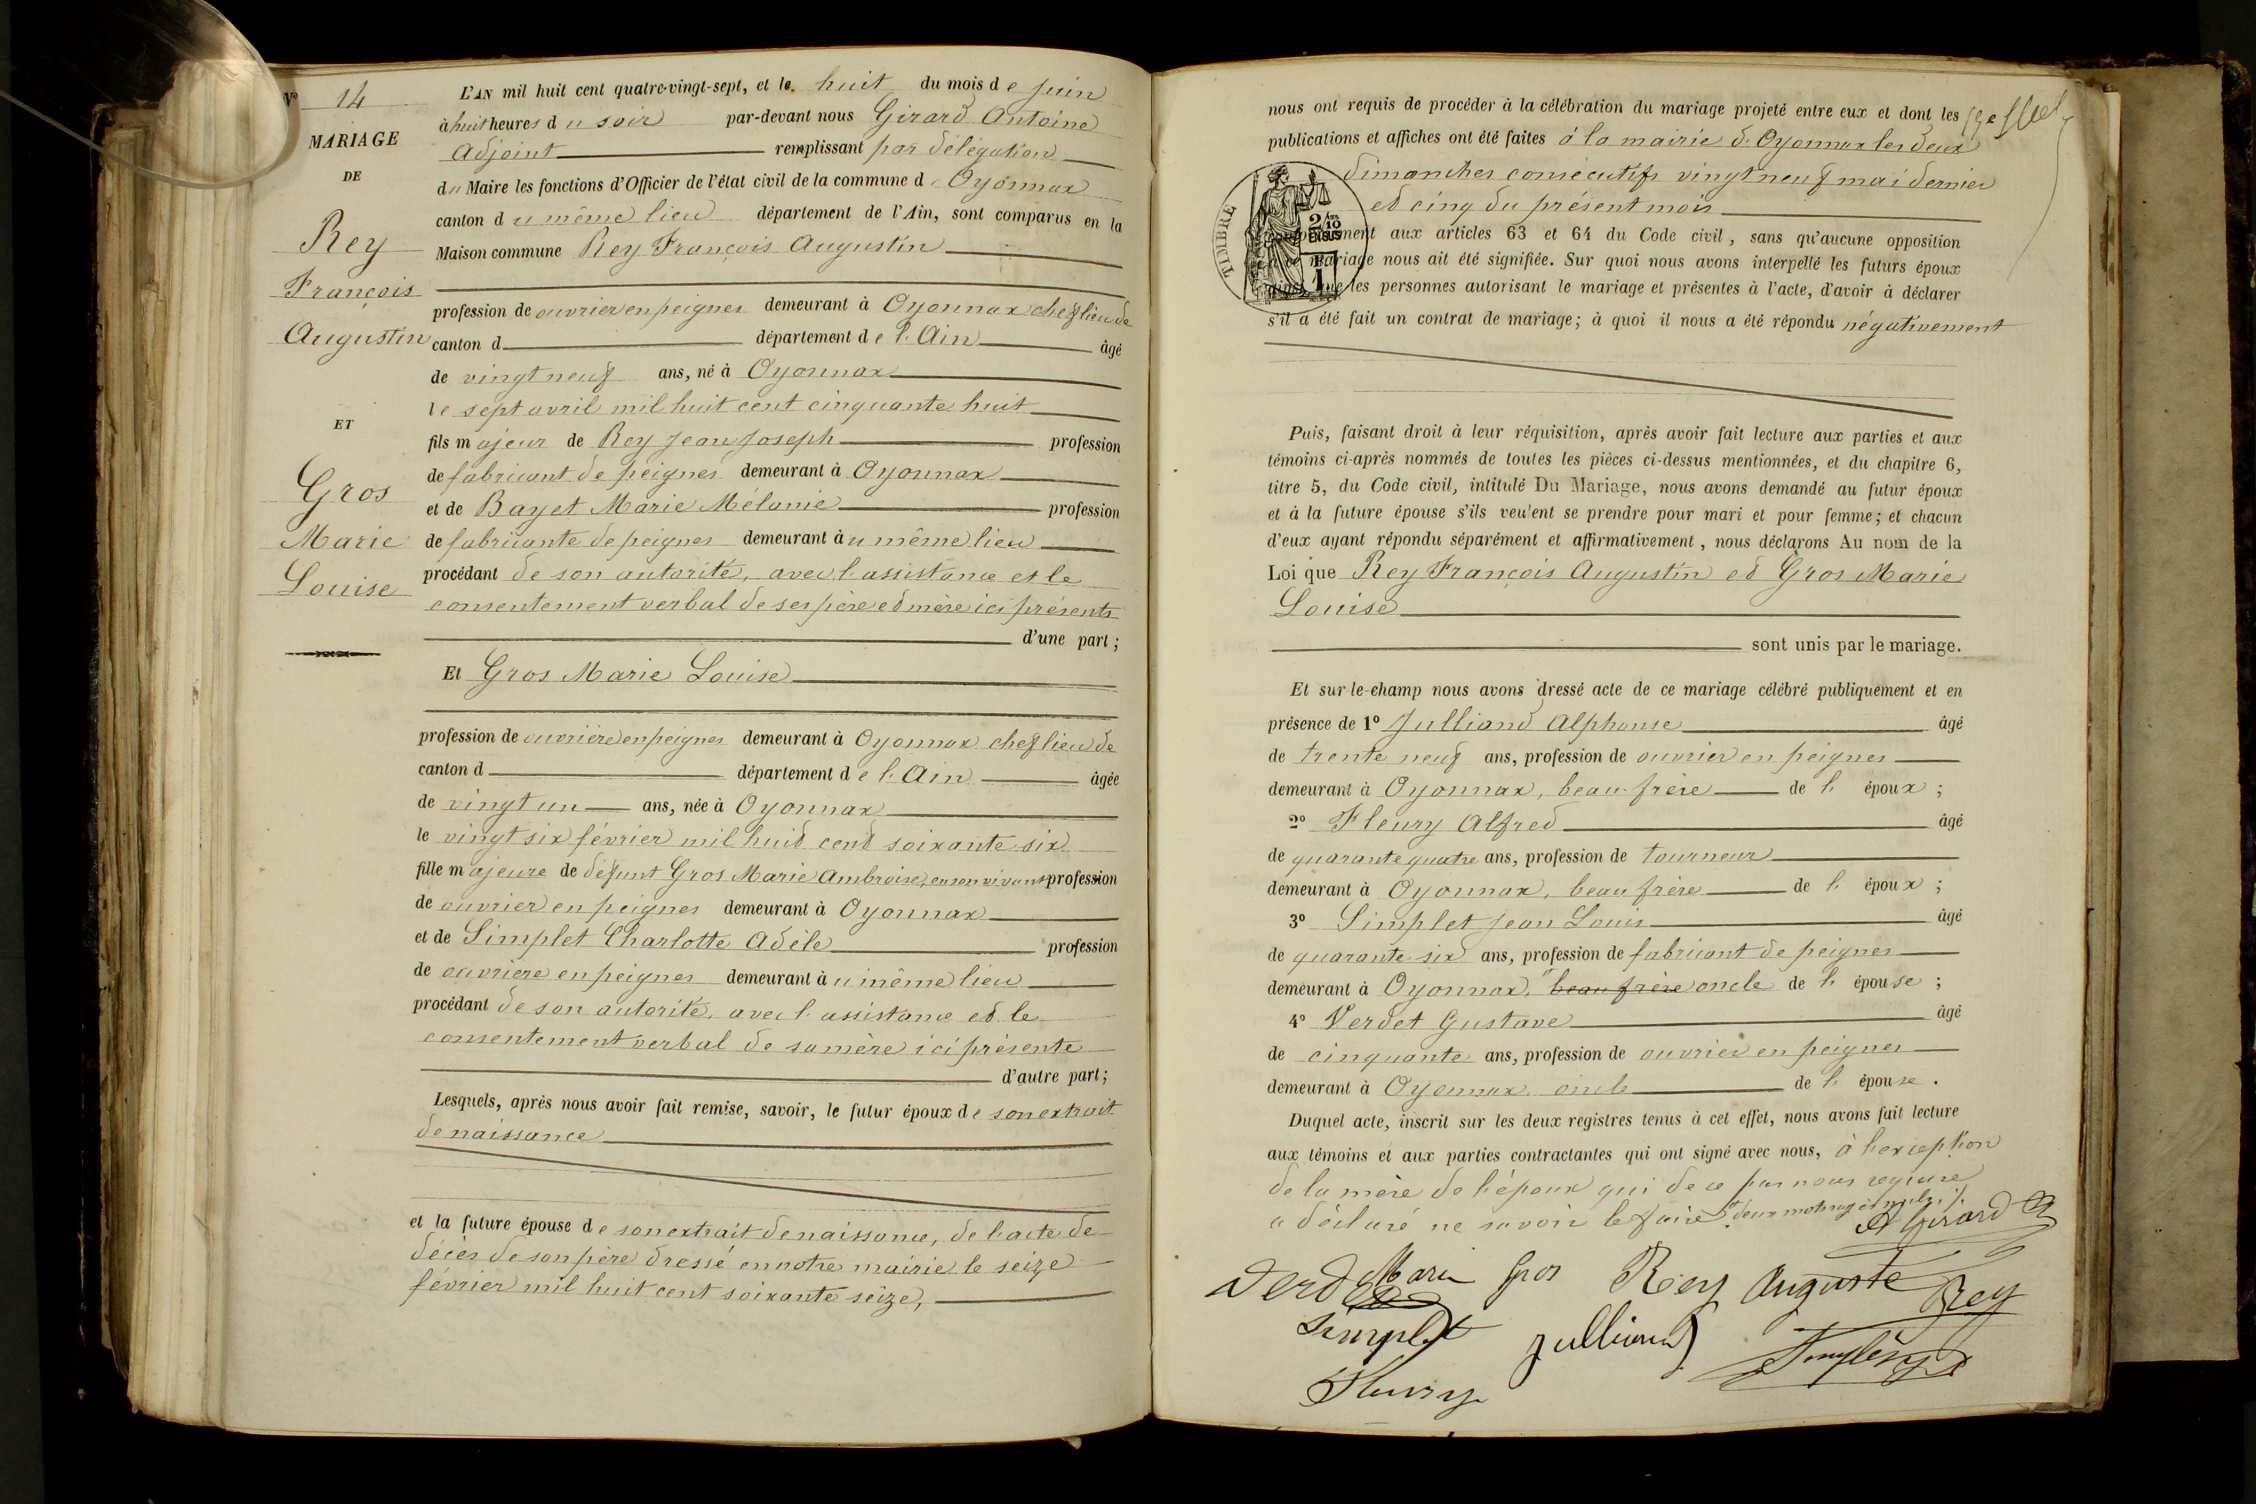 No 14
MARIAGE
DE
Rey
François
Augustin
ET
Gros
Marie
Louise
L'AN mil huit cent quatre-vingt-sept, et le huit du mois de juin
à huit heures du soir par-devant nous Girard Antoine
Adjoint remplissant par délégation
du Maire les fonctions d'Officier de l'état civil de la commune d'Oyonnax
canton du même lieu département de l'Ain, sont comparus en la
Maison commune Rey François Augustin
profession de ouvrier en peignes demeurant à Oyonnax chef lieu de
canton d département de l'Ain âgé
de vingt neuf ans, né à Oyonnax
le sept avril mil huit cent cinquante huit
fils majeur de Rey Jean Joseph profession
de fabricant de peignes demeurant à Oyonnax
et de Bayet Marie Mélanie profession
de fabricante de peignes demeurant au même lieu
procédant de son autorité, avec l'assistance et le
consentement verbal de ses père et mère ici présents
d'une part;
Et Gros Marie Louise
profession de ouvrière en peignes demeurant à Oyonnax chef lieu de
canton d département de l'Ain âgée
de vingt un ans, née à Oyonnax
le vingt six février mil huit cent soixante six
fille majeure de défunt Gros Marie Ambroise, en son vivant profession
de ouvrier en peignes demeurant à Oyonnax
et de Simplet Charlotte Adèle profession
de ouvrière en peignes demeurant au même lieu
procédant de son autorité, avec l'assistance et le
consentement verbal de sa mère ici présente
d'autre part;
Lesquels, après nous avoir fait remise, savoir, le futur époux de son extrait
de naissance
et la future épouse de son extrait de naissance, de l'acte de
décès de son père dressé en notre mairie le seize
février mil huit cent soixante seize,
nous ont requis de procéder à la célébration du mariage projeté entre eux et dont les
publications et affiches ont été faites à la mairie d'Oyonnax les deux
dimanches consécutifs vingt neuf mai dernier
et cinq du présent mois
TIMBRE
2/10 EN SUS
conformément aux articles 63 et 64 du Code civil, sans qu'aucune opposition
à ce mariage nous ait été signifiée. Sur quoi nous avons interpellé les futurs époux
ainsi que les personnes autorisant le mariage et présentes à l'acte, d'avoir à déclarer
s'il a été fait un contrat de mariage; à quoi il nous a été répondu négativement
Puis, faisant droit à leur réquisition, après avoir fait lecture aux parties et aux
témoins ci-après nommés de toutes les pièces ci-dessus mentionnées, et du chapitre 6,
titre 5, du Code civil, intitulé Du Mariage, nous avons demandé au futur époux
et à la future épouse s'ils veulent se prendre pour mari et pour femme; et chacun
d'eux ayant répondu séparément et affirmativement, nous déclarons Au nom de la
Loi que Rey François Augustin et Gros Marie
Louise
sont unis par le mariage.
Et sur-le-champ nous avons dressé acte de ce mariage célébré publiquement et en
présence de 1º Julliand Alphonse âgé
de trente neuf ans, profession de ouvrier en peignes
demeurant à Oyonnax, beau-frère de l'époux;
2º Fleury Alfred âgé
de quarante quatre ans, profession de tourneur
demeurant à Oyonnax, beau frère de l'époux;
3º Simplet Jean Louis âgé
de quarante six ans, profession de fabricant de peignes
demeurant à Oyonnax, beau frère oncle de l'épouse;
4º Verdet Gustave âgé
de cinquante ans, profession de ouvrier en peignes
demeurant à Oyonnax oncle de l'épouse.
Duquel acte, inscrit sur les deux registres tenus à cet effet, nous avons fait lecture
aux témoins et aux parties contractantes qui ont signé avec nous, à l'exception
de la mère de l'époux qui de ce par nous requise
a déclaré ne savoir le faire deux mots rayés nuls
A Girard
Verdet Marie Gros Rey Auguste Rey
Simplet Julliand
Fleury